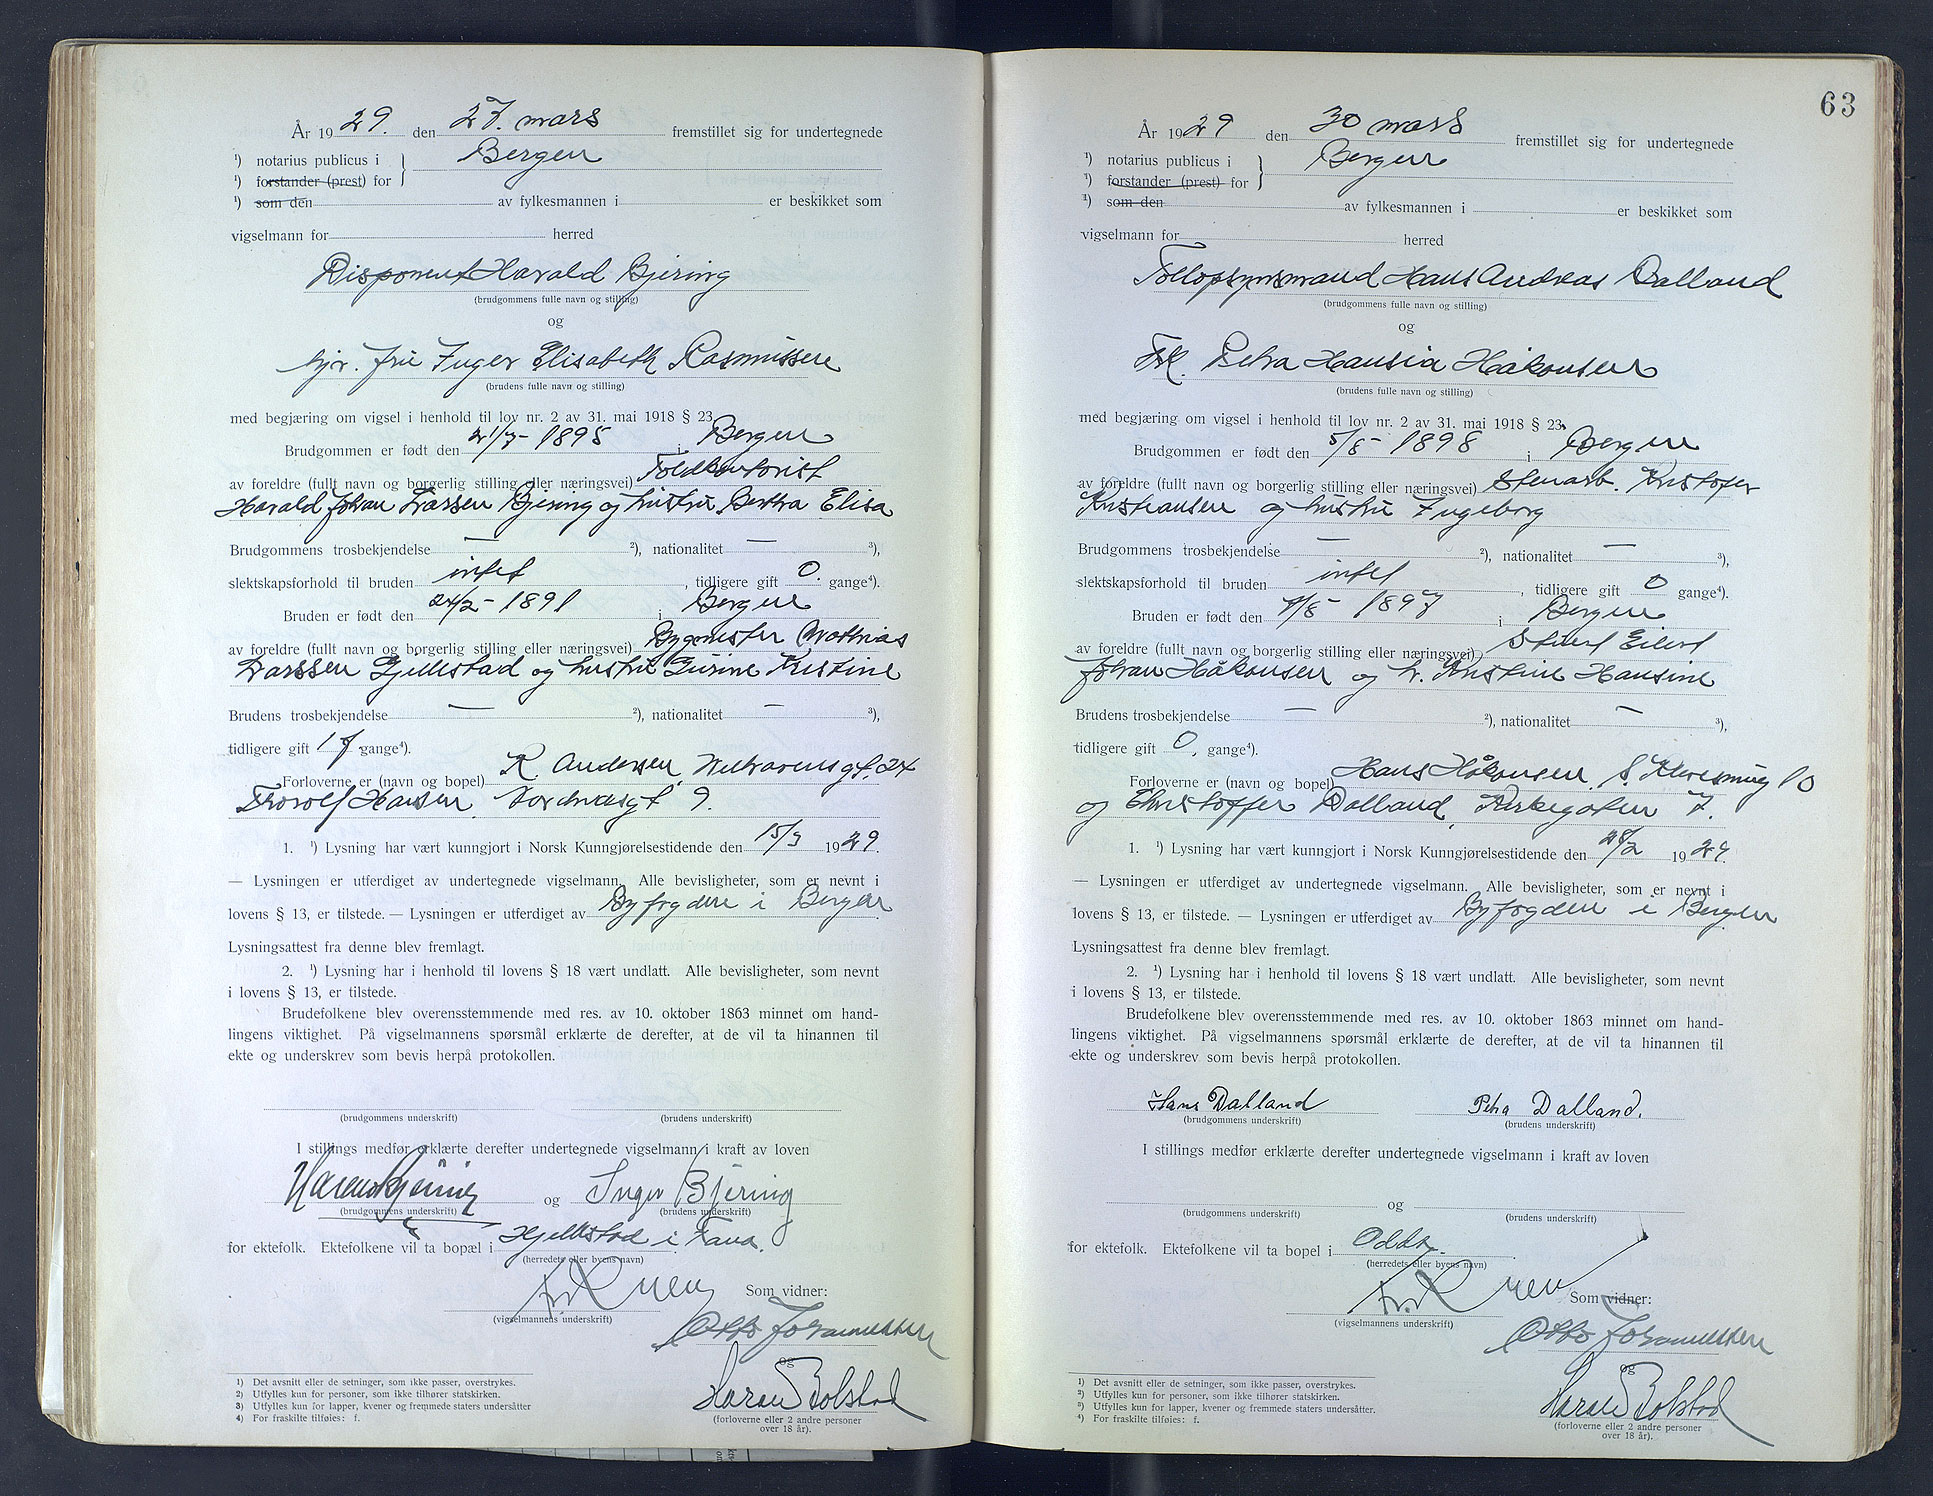 År 1929. den 27. mars fremstillet sig for undertegnede
¹) notarius publicus i } Bergen
¹) forstander (prest) for
¹) som den av fylkesmannen i er beskikket som
vigselmann for herred
Disponent Harald Bjering
(brudgommens fulle navn og stilling)
og
hjv. fru Inger Elisabeth Rasmussen
(brudens fulle navn og stilling)
med begjæring om vigsel i henhold til lov nr. 2 av 31. mai 1918 § 23.
Brudgommen er født den 21/7- 1895 i Bergen
av foreldre (fullt navn og borgerlig stilling eller næringsvei) Toldkontorist
Harald Johan Larssen Bjering og hustru Bertha Elisa
Brudgommens trosbekjendelse — ²), nationalitet — ³),
slektskapsforhold til bruden intet, tidligere gift 0. gange⁴).
Bruden er født den 24/2- 1891 i Bergen
av foreldre (fullt navn og borgerlig stilling eller næringsvei) Bygmester Mathias
Larssen Hjellestad og hustru Gurine Kristine
Brudens trosbekjendelse — ²), nationalitet — ³),
tidligere gift 1 f gange⁴).
Forloverne er (navn og bopel) R. Andersen, Welhavensgt. 24
Thorolf Hansen, Nordnesgt 9.
1. ¹) Lysning har vært kunngjort i Norsk Kunngjørelsestidende den 15/3 1929.
— Lysningen er utferdiget av undertegnede vigselmann. Alle bevisligheter, som er nevnt i
lovens § 13, er tilstede. — Lysningen er utferdiget av Byfogden i Bergen
Lysningsattest fra denne blev fremlagt.
2. ¹) Lysning har i henhold til lovens § 18 vært undlatt. Alle bevisligheter, som nevnt
i lovens § 13, er tilstede.
Brudefolkene blev overensstemmende med res. av 10. oktober 1863 minnet om hand-
lingens viktighet. På vigselmannens spørsmål erklærte de derefter, at de vil ta hinannen til
ekte og underskrev som bevis herpå protokollen.
(brudgommens underskrift) (brudens underskrift)
I stillings medfør erklærte derefter undertegnede vigselmann i kraft av loven
Harald Bjering og Inger Bjering
(brudgommens underskrift) (brudens underskrift)
for ektefolk. Ektefolkene vil ta bopæl i Hjellestad i Fana.
(herredets eller byens navn)
Som vidner:
(vigselmannens underskrift)
Otto Johannessen
og
Harald Bolstad
(forloverne eller 2 andre personer
over 18 år).
¹) Det avsnitt eller de setninger, som ikke passer, overstrykes.
²) Utfylles kun for personer, som ikke tilhører statskirken.
³) Utfylles kun for lapper, kvener og fremmede staters undersåtter
⁴) For fraskilte tilføies: f.
63
År 1929 den 30 mars fremstillet sig for undertegnede
¹) notarius publicus i } Bergen
¹) forstander (prest) for
¹) som den av fylkesmannen i er beskikket som
vigselmann for herred
Tollopsynsmand Hans Andreas Dalland
(brudgommens fulle navn og stilling)
og
Frk. Petra Hansia Håkonsen
(brudens fulle navn og stilling)
med begjæring om vigsel i henhold til lov nr. 2 av 31. mai 1918 § 23.
Brudgommen er født den 5/8- 1898 i Bergen
av foreldre (fullt navn og borgerlig stilling eller næringsvei) Stenarb. Kristofer
Kristiansen og hustru Ingeborg
Brudgommens trosbekjendelse — ²), nationalitet — ³),
slektskapsforhold til bruden intet, tidligere gift 0 gange⁴).
Bruden er født den 7/8- 1897 i Bergen
av foreldre (fullt navn og borgerlig stilling eller næringsvei) Stuert Eilert
Johan Håkonsen og h. Kristine Hansine
Brudens trosbekjendelse — ²), nationalitet — ³),
tidligere gift 0. gange⁴).
Forloverne er (navn og bopel) Hans Håkonsen, 10
og Christoffer Dalland, Kirkegaten 7.
1. ¹) Lysning har vært kunngjort i Norsk Kunngjørelsestidende den 28/2 1929.
— Lysningen er utferdiget av undertegnede vigselmann. Alle bevisligheter, som er nevnt i
lovens § 13, er tilstede. — Lysningen er utferdiget av Byfogden i Bergen
Lysningsattest fra denne blev fremlagt.
2. ¹) Lysning har i henhold til lovens § 18 vært undlatt. Alle bevisligheter, som nevnt
i lovens § 13, er tilstede.
Brudefolkene blev overensstemmende med res. av 10. oktober 1863 minnet om hand-
lingens viktighet. På vigselmannens spørsmål erklærte de derefter, at de vil ta hinannen til
ekte og underskrev som bevis herpå protokollen.
Hans Dalland Petra Dalland.
(brudgommens underskrift) (brudens underskrift)
I stillings medfør erklærte derefter undertegnede vigselmann i kraft av loven
og
(brudgommens underskrift) (brudens underskrift)
for ektefolk. Ektefolkene vil ta bopel i Odda.
(herredets eller byens navn)
Som vidner:
(vigselmannens underskrift)
Otto Johannessen
og
Harald Bolstad
(forloverne eller 2 andre personer
over 18 år).
¹) Det avsnitt eller de setninger, som ikke passer, overstrykes.
²) Utfylles kun for personer, som ikke tilhører statskirken.
³) Utfylles kun for lapper, kvener og fremmede staters undersåtter.
⁴) For fraskilte tilføies: f.